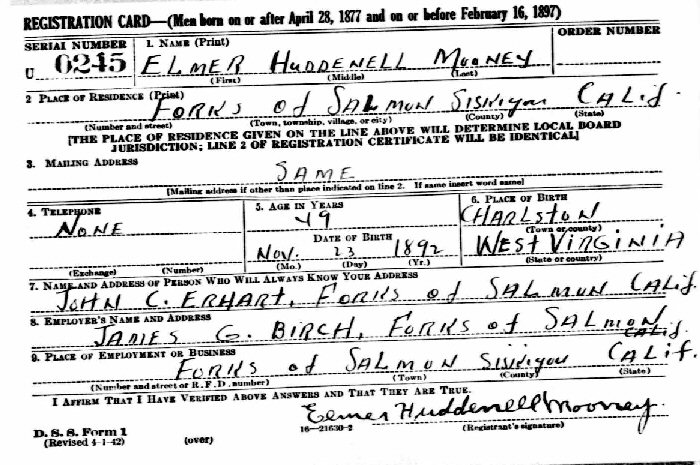 REGISTRATION CARD—(Men born on or after April 28, 1877 and on or before February 16, 1897)
SERIAL NUMBER
1. NAME (Print)
ORDER NUMBER
U 6245
ELMER HUDDENELL MOONEY
(First) (Middle) (Last)
2 PLACE OF RESIDENCE (Print)
FORKS of SALMON SISKIYOU CALIF.
(Number and street) (Town, township, village, or city) (County) (State)
[THE PLACE OF RESIDENCE GIVEN ON THE LINE ABOVE WILL DETERMINE LOCAL BOARD
JURISDICTION; LINE 2 OF REGISTRATION CERTIFICATE WILL BE IDENTICAL]
3. MAILING ADDRESS
SAME
[Mailing address if other than place indicated on line 2. If same insert word same]
4. TELEPHONE
NONE
(Exchange) (Number)
5. AGE IN YEARS
49
DATE OF BIRTH
Nov. 23 1892
(Mo.) (Day) (Yr.)
6. PLACE OF BIRTH
CHARLSTON
(Town or county)
WEST VIRGINIA
(State or country)
7. NAME AND ADDRESS OF PERSON WHO WILL ALWAYS KNOW YOUR ADDRESS
JOHN C. ERHART, FORKS of SALMON CALIF.
8. EMPLOYER'S NAME AND ADDRESS
JAMES G. BIRCH, FORKS of SALMON
CALIF.
9. PLACE OF EMPLOYMENT OR BUSINESS
FORKS of SALMON SISKIYOU CALIF.
(Number and street or R. F. D. number) (Town) (County) (State)
I AFFIRM THAT I HAVE VERIFIED ABOVE ANSWERS AND THAT THEY ARE TRUE.
Elmer Huddenell Mooney.
D. S. S. Form 1
(Revised 4-1-42) (over) 16—21630-2 (Registrant's signature)